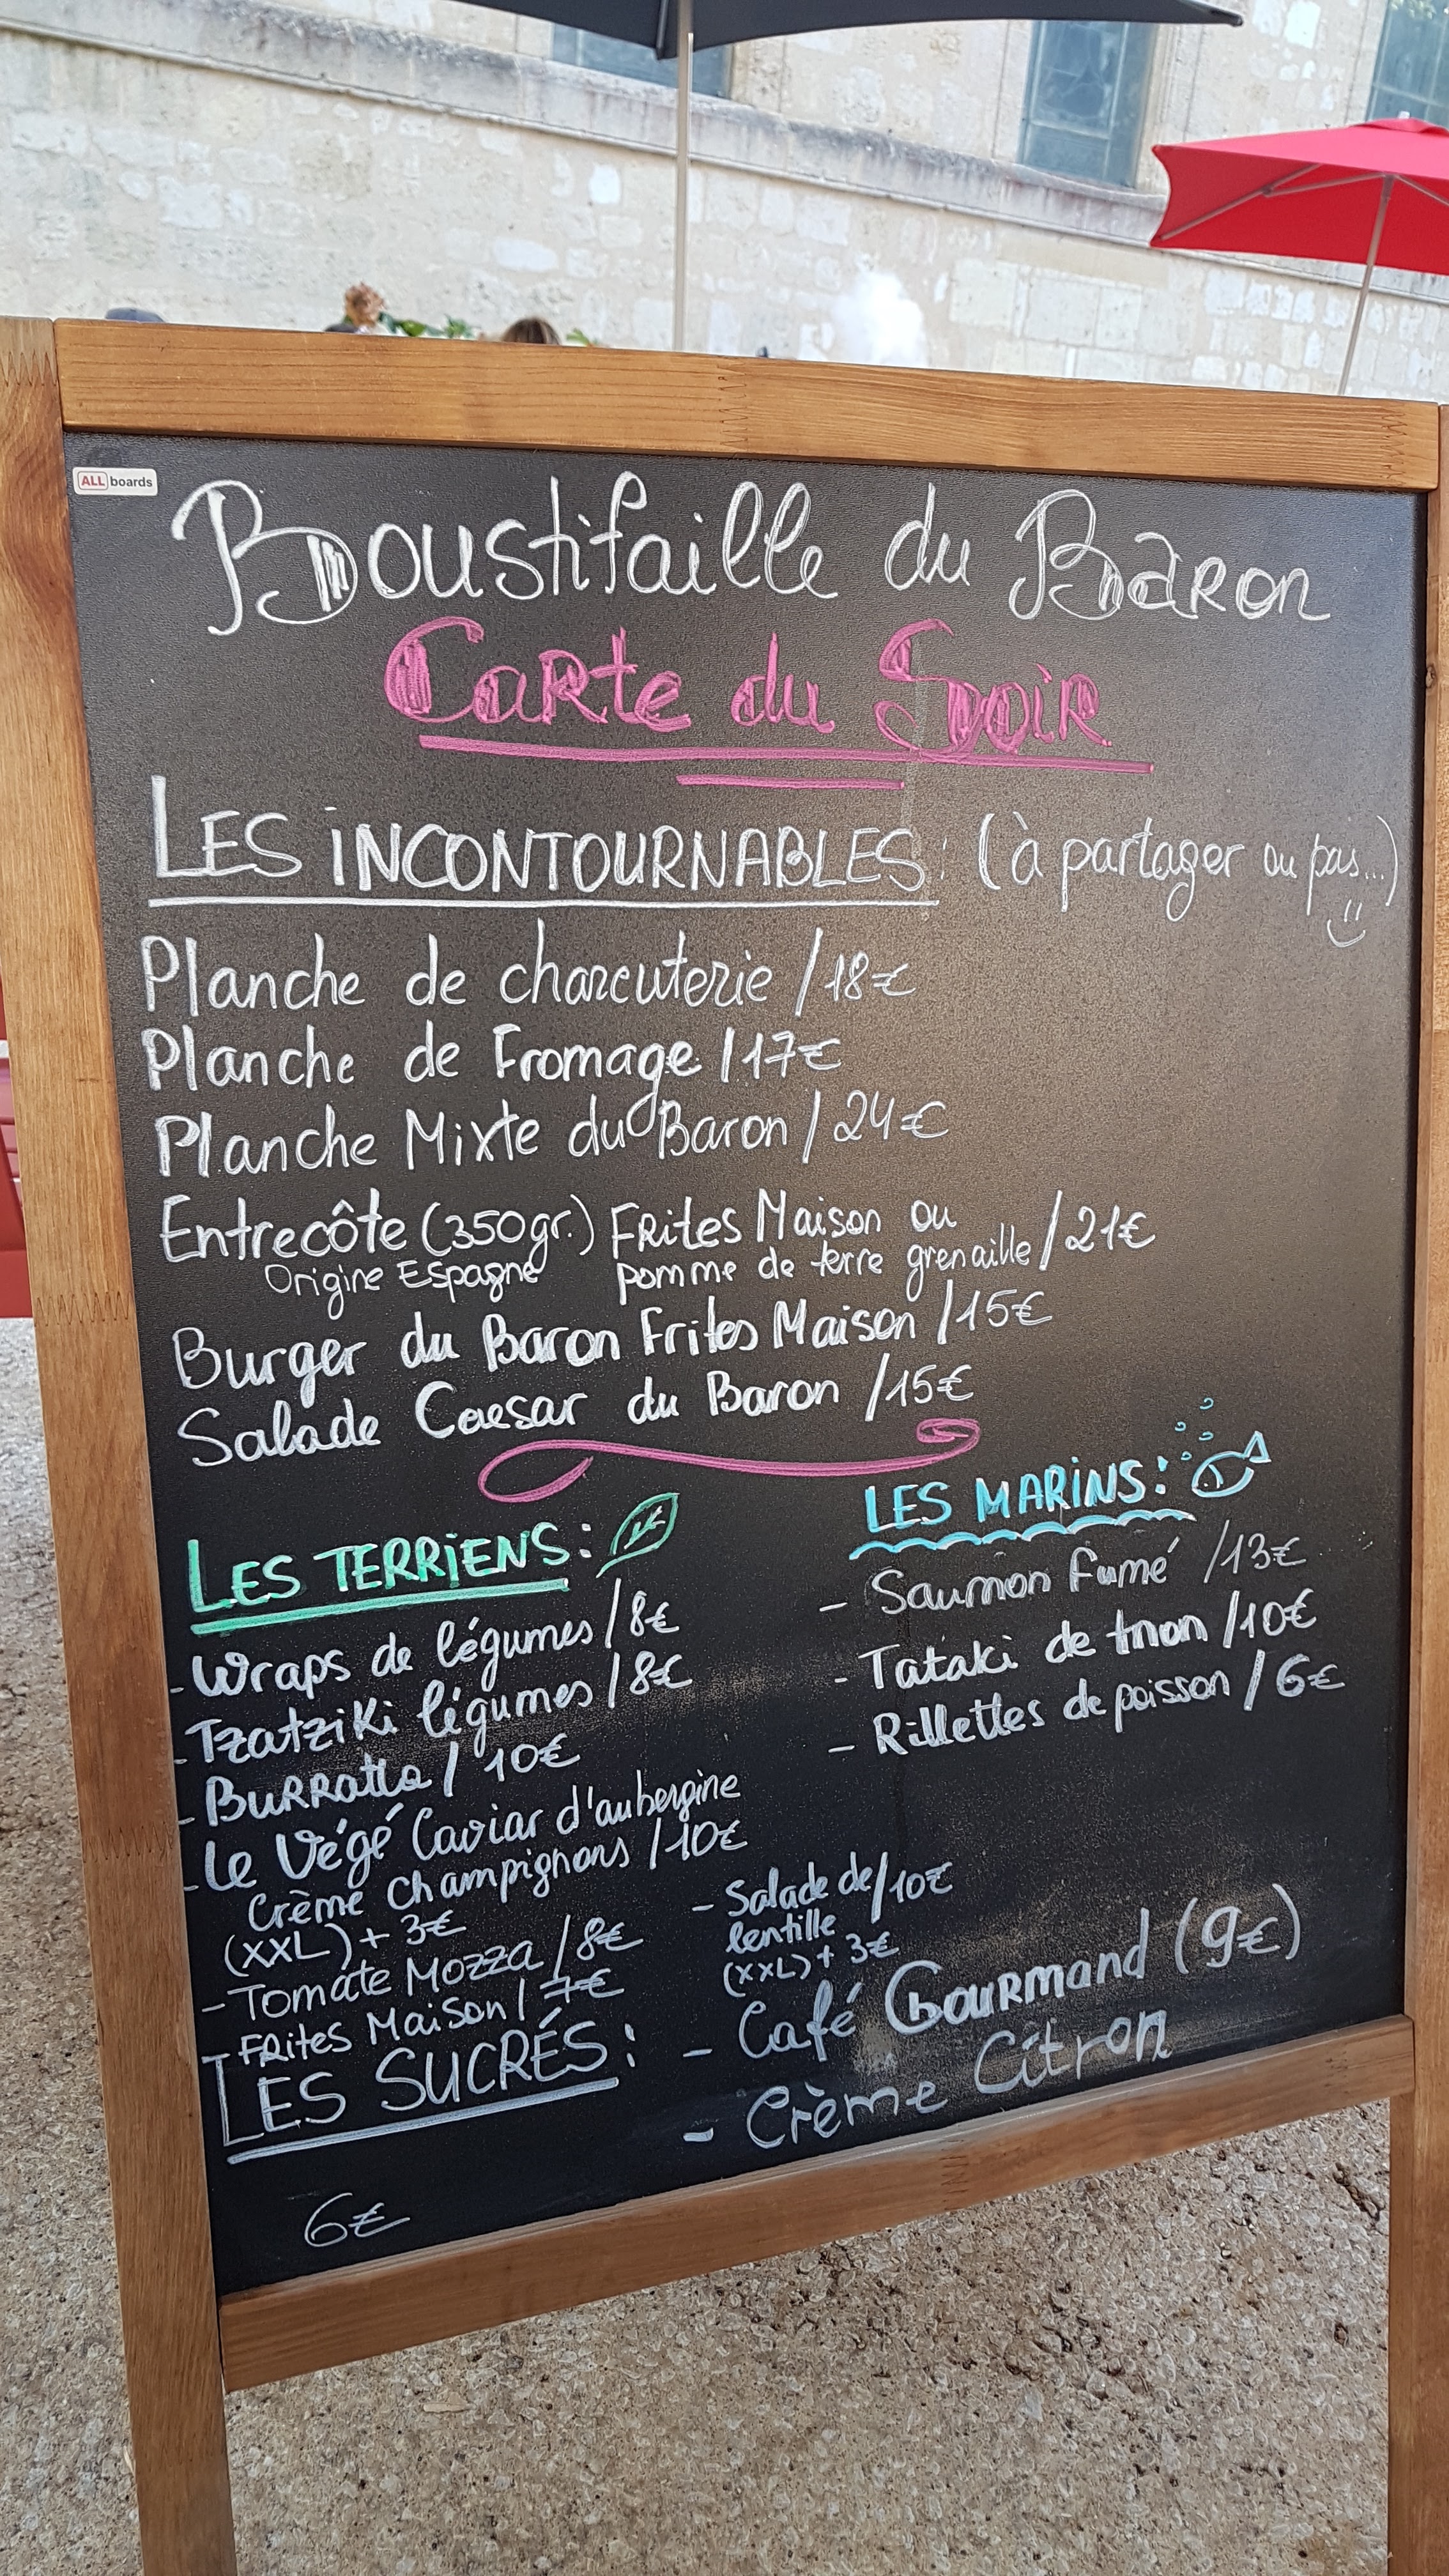 ALL boards
Boustifaille du Baron
Carte du Soir
LES INCONTOURNABLES : (à partager ou pas...)
Planche de charcuterie / 18€
Planche de Fromage / 17€
Planche Mixte du Baron / 24€
Entrecôte (350gr.) Frites Maison ou
Origine Espagne pomme de terre grenaille / 21€
Burger du Baron Frites Maison / 15€
Salade Caesar du Baron / 15€
LES TERRIENS :
- Wraps de légumes / 8€
- Tzatziki légumes / 8€
- Burratta / 10€
- Le Végé Caviar d'aubergine
Crème Champignons / 10€
(XXL) + 3€
- Tomate Mozza / 8€
- Frites Maison / 7€
LES MARINS :
- Saumon fumé / 13€
- Tataki de thon / 10€
- Rillettes de poisson / 6€
- Salade de / 10€
lentille
(XXL) + 3€
LES SUCRÉS :
- Café Gourmand (9€)
- Crème Citron
6€